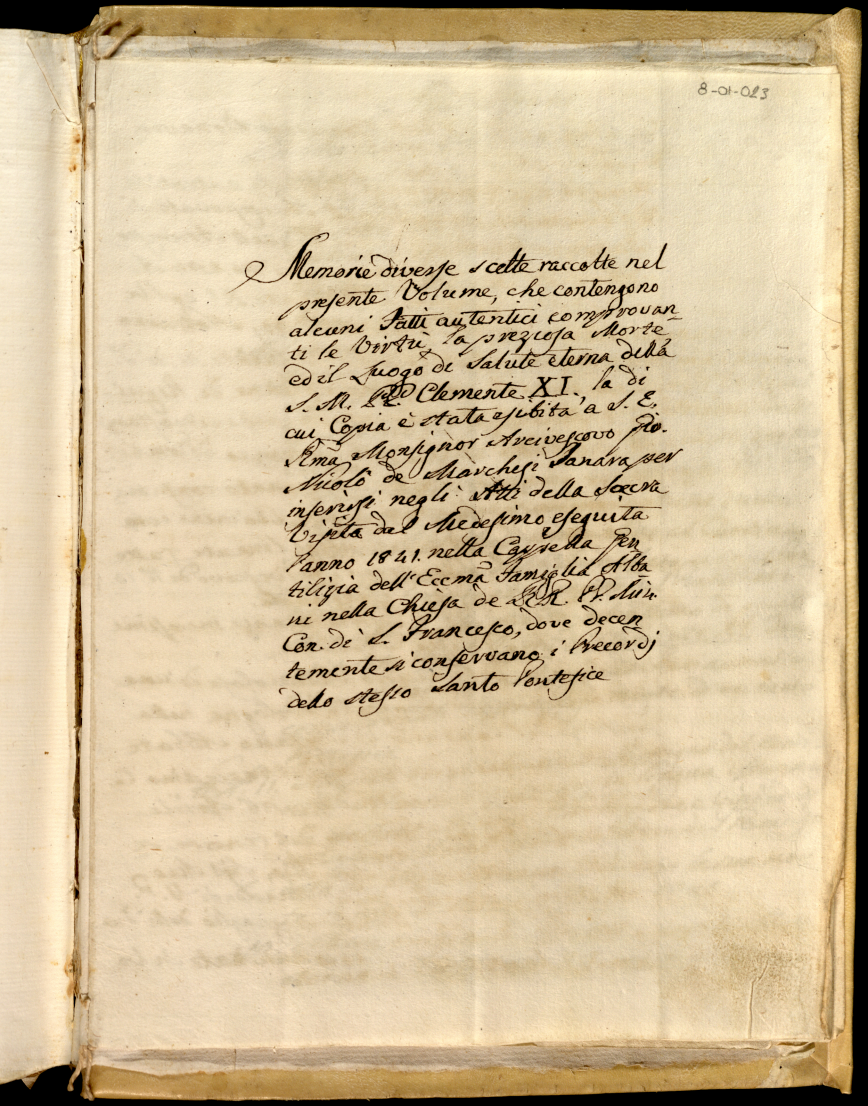 8-01-023
Memorie diverse scelte raccolte nel
presente Volume, che contengono
alcuni Fatti autentici comprovan-
ti le Virtù, la preziosa Morte
ed il Luogo di Salute eterna della
S. M. di Clemente XI., la di
cui Copia è stata esibita a S. E.
Rma Monsignor Arcivescovo Gio.
Nicolò de Marchesi Tanara per
inserirsi negli Atti della Sacra
Visita dal Medesimo eseguita
l'anno 1841. nella Cappella Gen
tilizia dell'Eccma Famiglia Alba
ni nella Chiesa de RR. PP. Min.
Con. di S. Francesco, dove decen
temente si conservano i Precordj
dello stesso Santo Pontefice